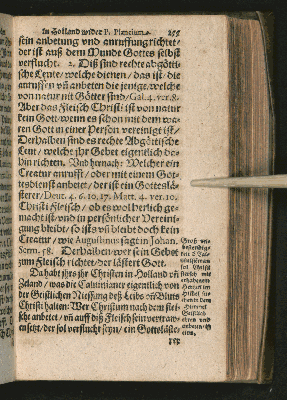 in Holland wider P. Plancium. 255
sein anbetung vnd anruffung richtet/
der ist auß dem Munde Gottes selbst
verflucht. 2. Diß sind rechte abgötti-
sche Leute/ welche dienen/ das ist/ die
anruffen vñ anbeten die jenige/ welche
von natur nit Götter sind/ Gal. 4. ver. 8.
Aber das Fleisch Christi ist von natur
kein Gott/ wenn es schon mit dem wa-
ren Gott in einer Person vereiniget ist/
Derhalben sind es rechte Abgöttische
Leut/ welche jhr Gebet eigentlich da-
hin richten. Vnd hernach: Welcher ein
Creatur anrufft/ oder mit einem Got-
tesdienst anbetet/ der ist ein Gottesläs-
terer/ Deut. 4. 6. 10. 17. Matt. 4. ver. 10.
Christi Fleisch/ ob es wol herrlich ge-
macht ist/ vnd in persönlicher Vereini-
gung bleibt/ so ists vñ bleibt doch kein
Creatur/ wie Augustinus sagt in Johan.
Serm. 58. Derhalben/ wer sein Gebet
zum Fleisch richtet/ der lästert Gott.
Da habt jhrs jhr Christen in Holland vñ
Zeland/ was die Caluinianer eigentlich von
der Geistlichen Niessung deß Leibs vñ Bluts
Christi halten: Wer Christum nach dem fleis-
che anbetet/ vñ auff diß Fleisch sein vertraw-
en setzt/ der sol verflucht seyn/ ein Gottesläste-